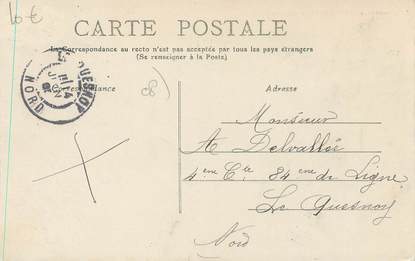 10 €
CARTE POSTALE
La Correspondance au recto n'est pas acceptée par tous les pays étrangers
(Se renseigner à la Poste)
Correspondance
Adresse
QUESNOY
NORD
Monsieur
A Delvallée
4eme Cie 84eme de Ligne
Le Quesnoy
Nord